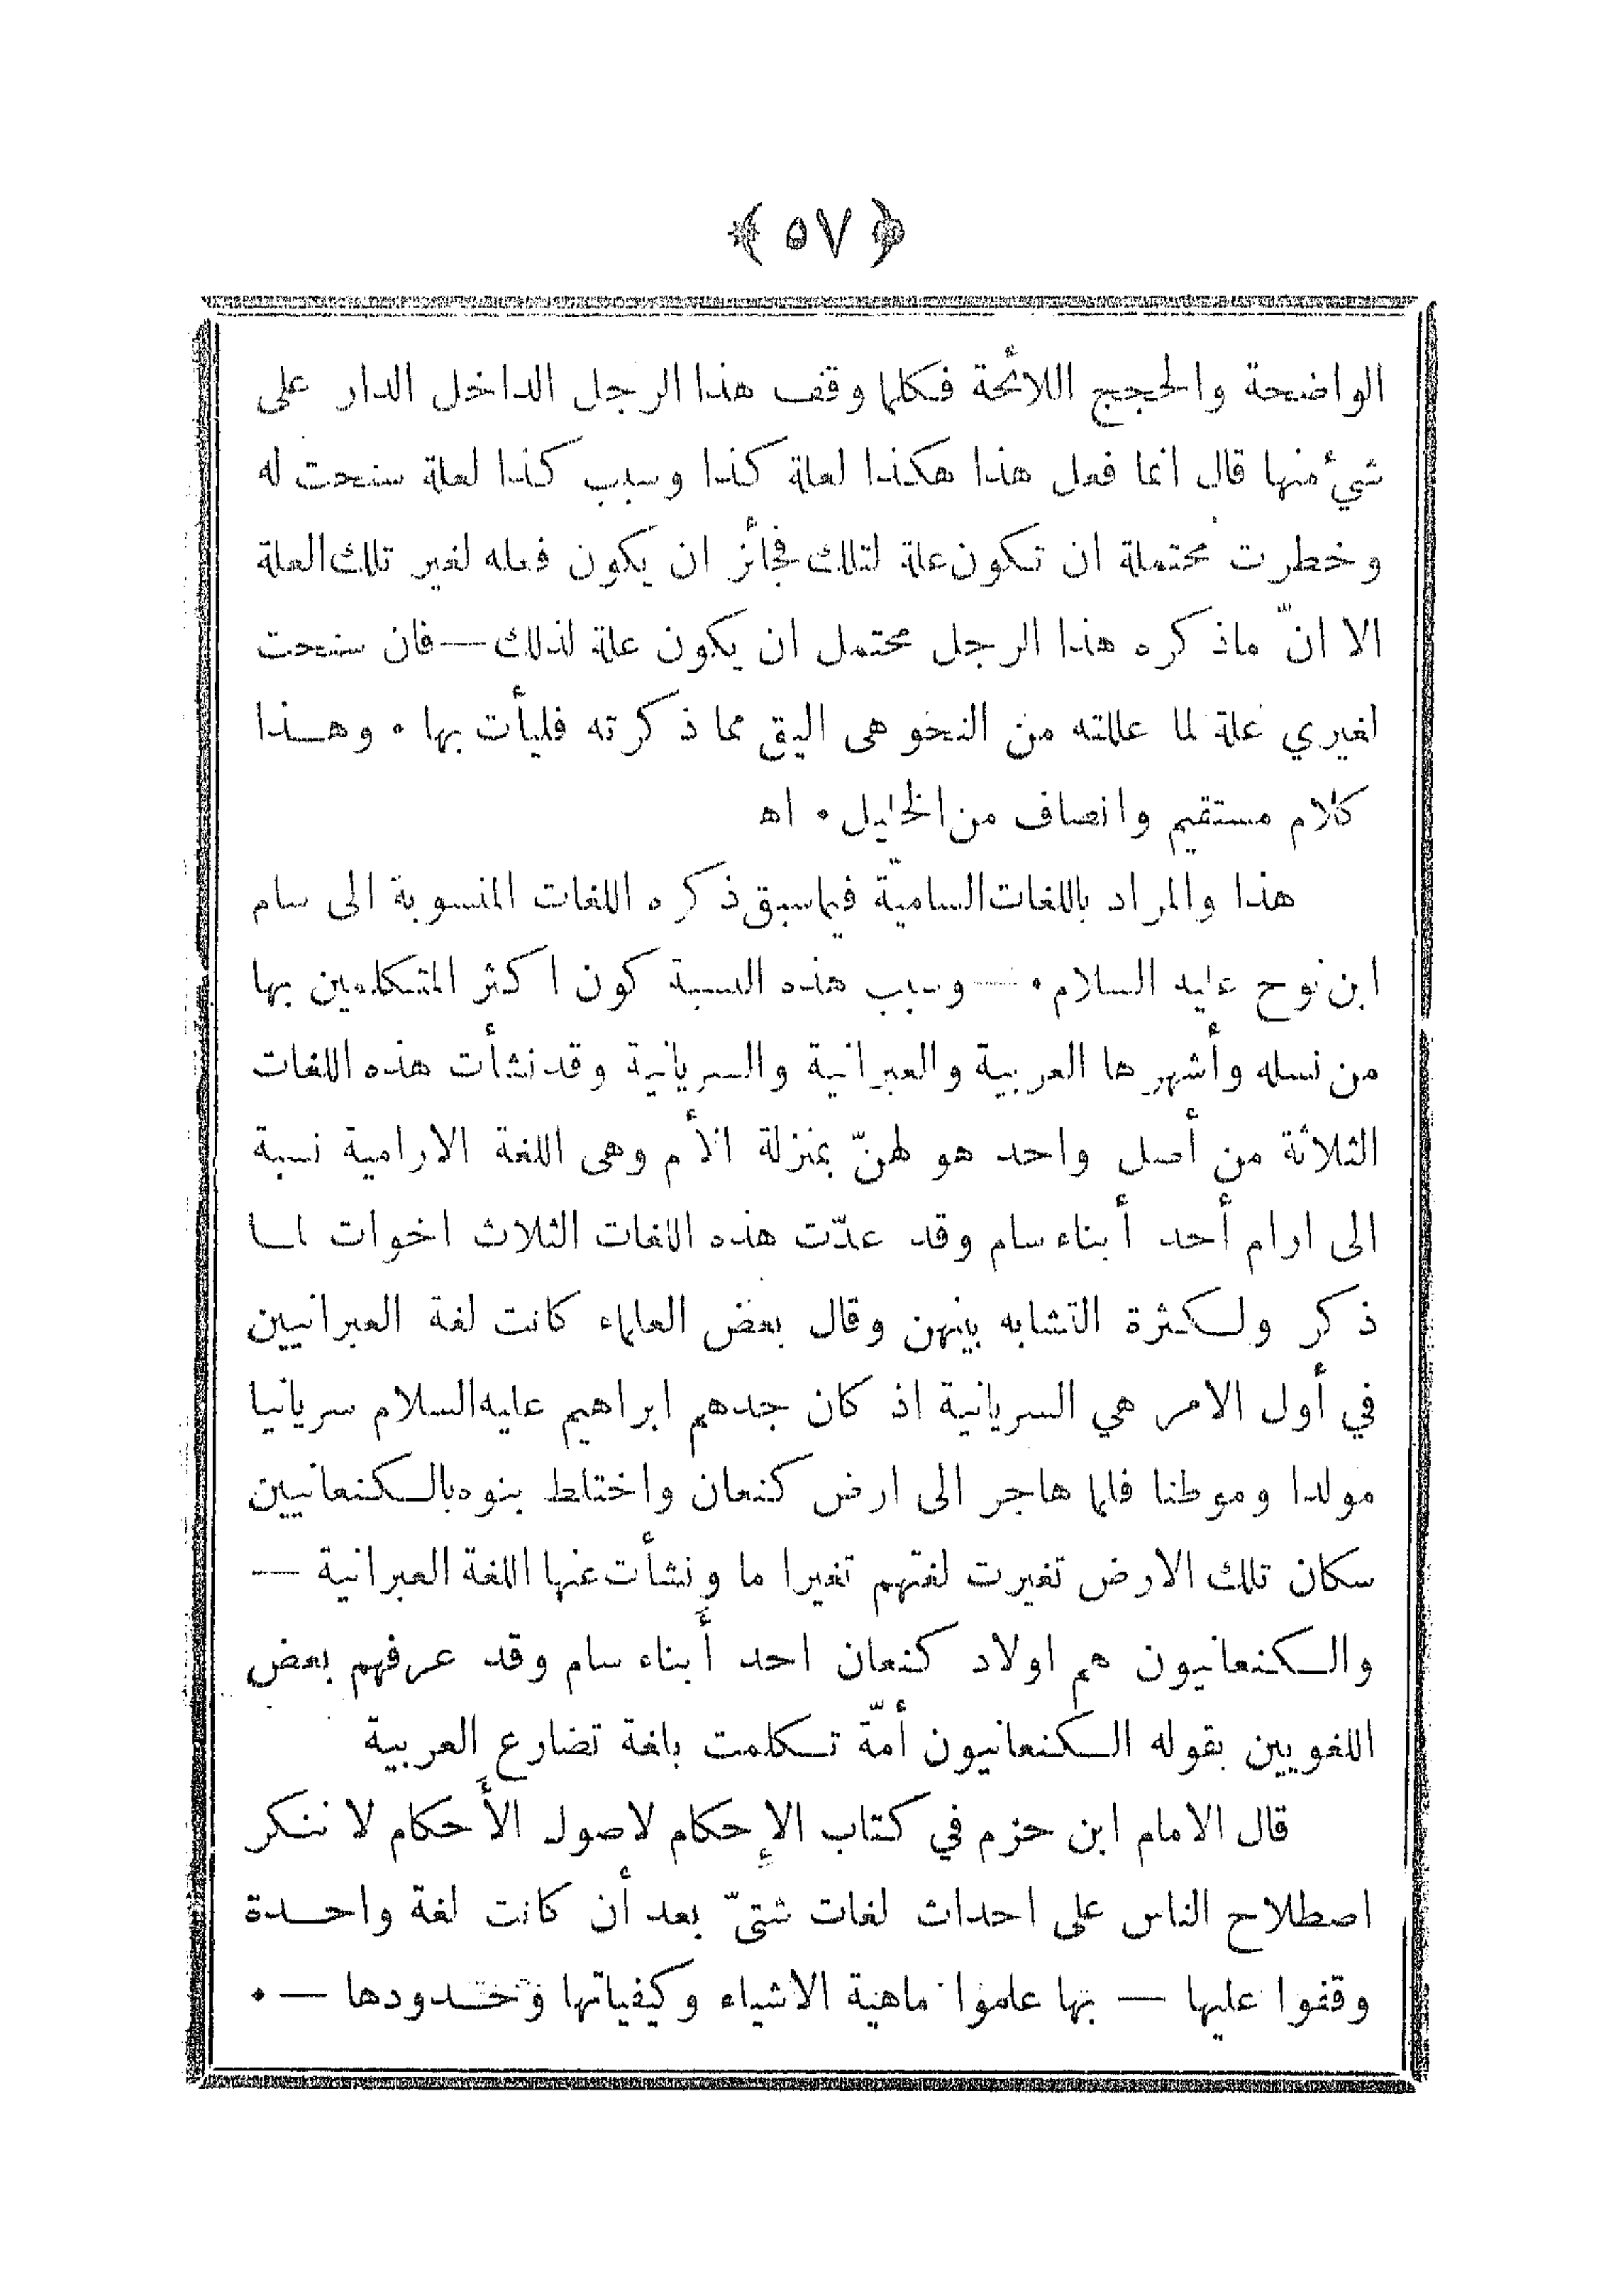 ﴿ ٥٧ ﴾
الواضحة والحجج اللائحة فكلما وقف هذا الرجل الداخل الدار على
شيء منها قال انما فعل هذا هكذا لعلة كذا وسبب كذا لعلة سنحت له
وخطرت محتملة ان تكون علة لتلك فجأئز ان يكون فعله لغير تلك العلة
الا انّ ماذكره هذا الرجل محتمل ان يكون علة لذلك — فان سنحت
لغيري علة لما عللته من النحو هى اليق مما ذكرته فليأت بها • وهذا
كلام مستقيم وانصاف من الخليل • اه
هذا والمراد باللغات السامية فيما سبق ذكره اللغات المنسوبة الى سام
ابن نوح عليه السلام • — وسبب هذه النسبة كون اكثر المتكلمين بها
من نسله وأشهرها العربية والعبرانية والسريانية وقد نشأت هذه اللغات
الثلاثة من أصل واحد هو لهنّ بمنزلة الأم وهى اللغة الارامية نسبة
الى ارام أحد أبناء سام وقد عدّت هذه اللغات الثلاث اخوات لما
ذكر ولكثرة التشابه بينهن وقال بعض العلماء كانت لغة العبرانيين
في أول الامر هي السريانية اذ كان جدهم ابراهيم عليه السلام سريانيا
مولدا وموطنا فلما هاجر الى ارض كنعان واختلط بنوه بالكنعانيين
سكان تلك الارض تغيرت لغتهم تغيرا ما ونشأت عنها اللغة العبرانية —
والكنعانيون هم اولاد كنعان احد أَبناء سام وقد عرفهم بعض
اللغويين بقوله الكنعانيون أمّة تكلمت بلغة تضارع العربية
قال الامام ابن حزم في كتاب الإحكام لاصول الأَحكام لا ننكر
اصطلاح الناس على احداث لغات شتىّ بعد أن كانت لغة واحدة
وقفوا عليها — بها علموا ماهية الاشياء وكيفياتها وحدودها — •